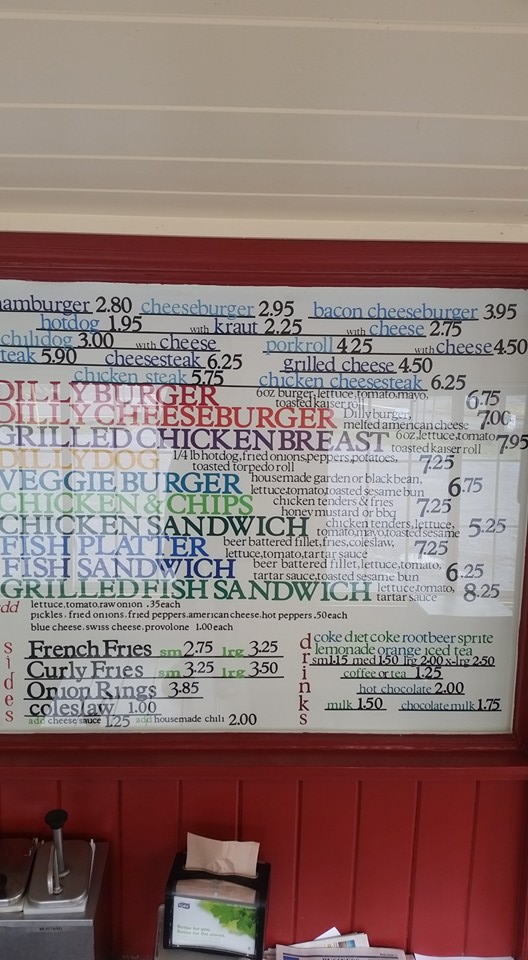 hamburger 2.80 cheeseburger 2.95 bacon cheeseburger 3.95
hotdog 1.95 with kraut 2.25 with cheese 2.75
chilidog 3.00 with cheese porkroll 4.25 with cheese 4.50
steak 5.90 cheesesteak 6.25 grilled cheese 4.50
chicken steak 5.75 chicken cheesesteak 6.25
DILLYBURGER 6oz burger, lettuce, tomato, mayo, toasted kaiser roll 6.75
DILLY CHEESEBURGER Dillyburger, melted american cheese 7.00
GRILLED CHICKEN BREAST 6oz, lettuce, tomato toasted kaiser roll 7.95
DILLYDOG 1/4 lb hotdog, fried onions, peppers, potatoes, toasted torpedo roll 7.25
VEGGIE BURGER housemade garden or black bean, lettuce, tomato, toasted sesame bun 6.75
CHICKEN & CHIPS chicken tenders & fries honey mustard or bbq 7.25
CHICKEN SANDWICH chicken tenders, lettuce, tomato, mayo, toasted sesame 5.25
FISH PLATTER beer battered fillet, fries, coleslaw, lettuce, tomato, tartar sauce 7.25
FISH SANDWICH beer battered fillet, lettuce, tomato, tartar sauce, toasted sesame bun 6.25
GRILLED FISH SANDWICH lettuce, tomato, tartar sauce 8.25
add lettuce, tomato, raw onion .35 each
pickles, fried onions, fried peppers, american cheese, hot peppers .50 each
blue cheese, swiss cheese, provolone 1.00 each
sides
French Fries sm 2.75 lrg 3.25
Curly Fries sm 3.25 lrg 3.50
Onion Rings 3.85
coleslaw 1.00
add cheese sauce 1.25 add housemade chili 2.00
drinks
coke diet coke rootbeer sprite
lemonade orange iced tea
sm 1.15 med 1.50 lrg 2.00 x-lrg 2.50
coffee or tea 1.25
hot chocolate 2.00
milk 1.50 chocolate milk 1.75